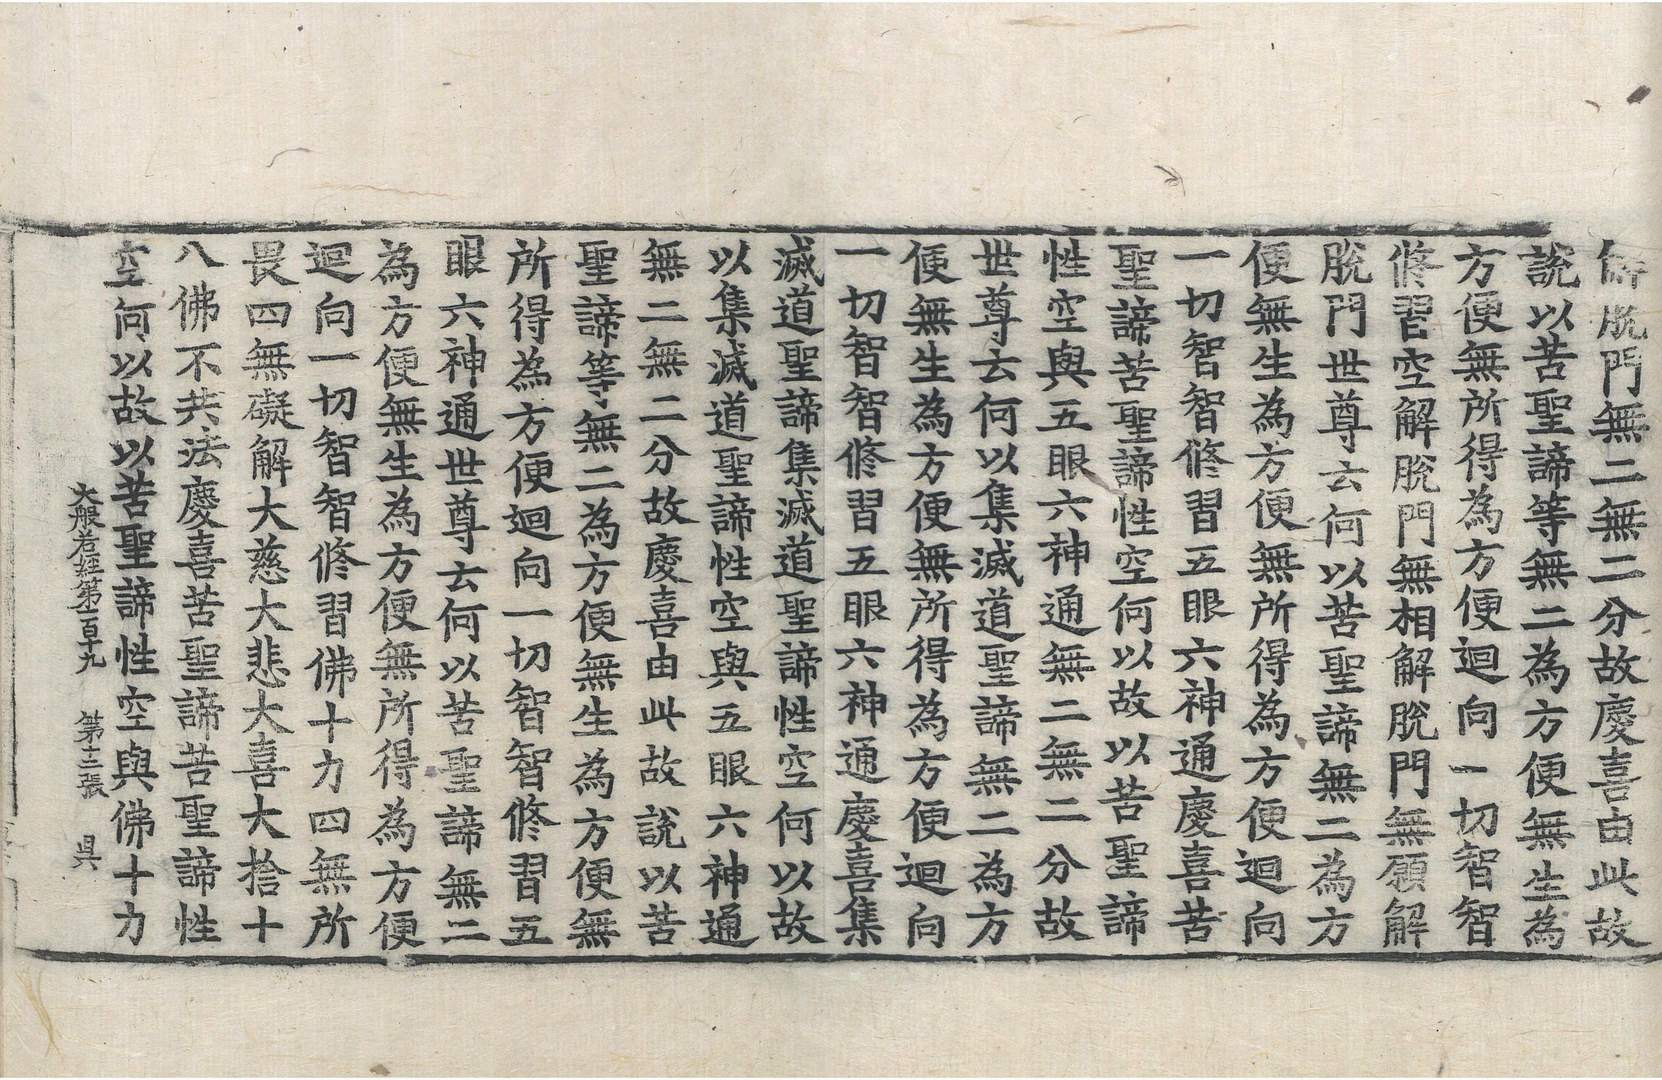 解脫門無二無二分故慶喜由此故
說以苦聖諦等無二為方便無生為
方便無所得為方便迴向一切智智
修習空解脫門無相解脫門無願解
脫門世尊云何以苦聖諦無二為方
便無生為方便無所得為方便迴向
一切智智修習五眼六神通慶喜苦
聖諦苦聖諦性空何以故以苦聖諦
性空與五眼六神通無二無二分故
世尊云何以集滅道聖諦無二為方
便無生為方便無所得為方便迴向
一切智智修習五眼六神通慶喜集
滅道聖諦集滅道聖諦性空何以故
以集滅道聖諦性空與五眼六神通
無二無二分故慶喜由此故說以苦
聖諦等無二為方便無生為方便無
所得為方便迴向一切智智修習五
眼六神通世尊云何以苦聖諦無二
為方便無生為方便無所得為方便
迴向一切智智修習佛十力四無所
畏四無礙解大慈大悲大喜大捨十
八佛不共法慶喜苦聖諦苦聖諦性
空何以故以苦聖諦性空與佛十力
大般若經第百十九 第十二張 吳